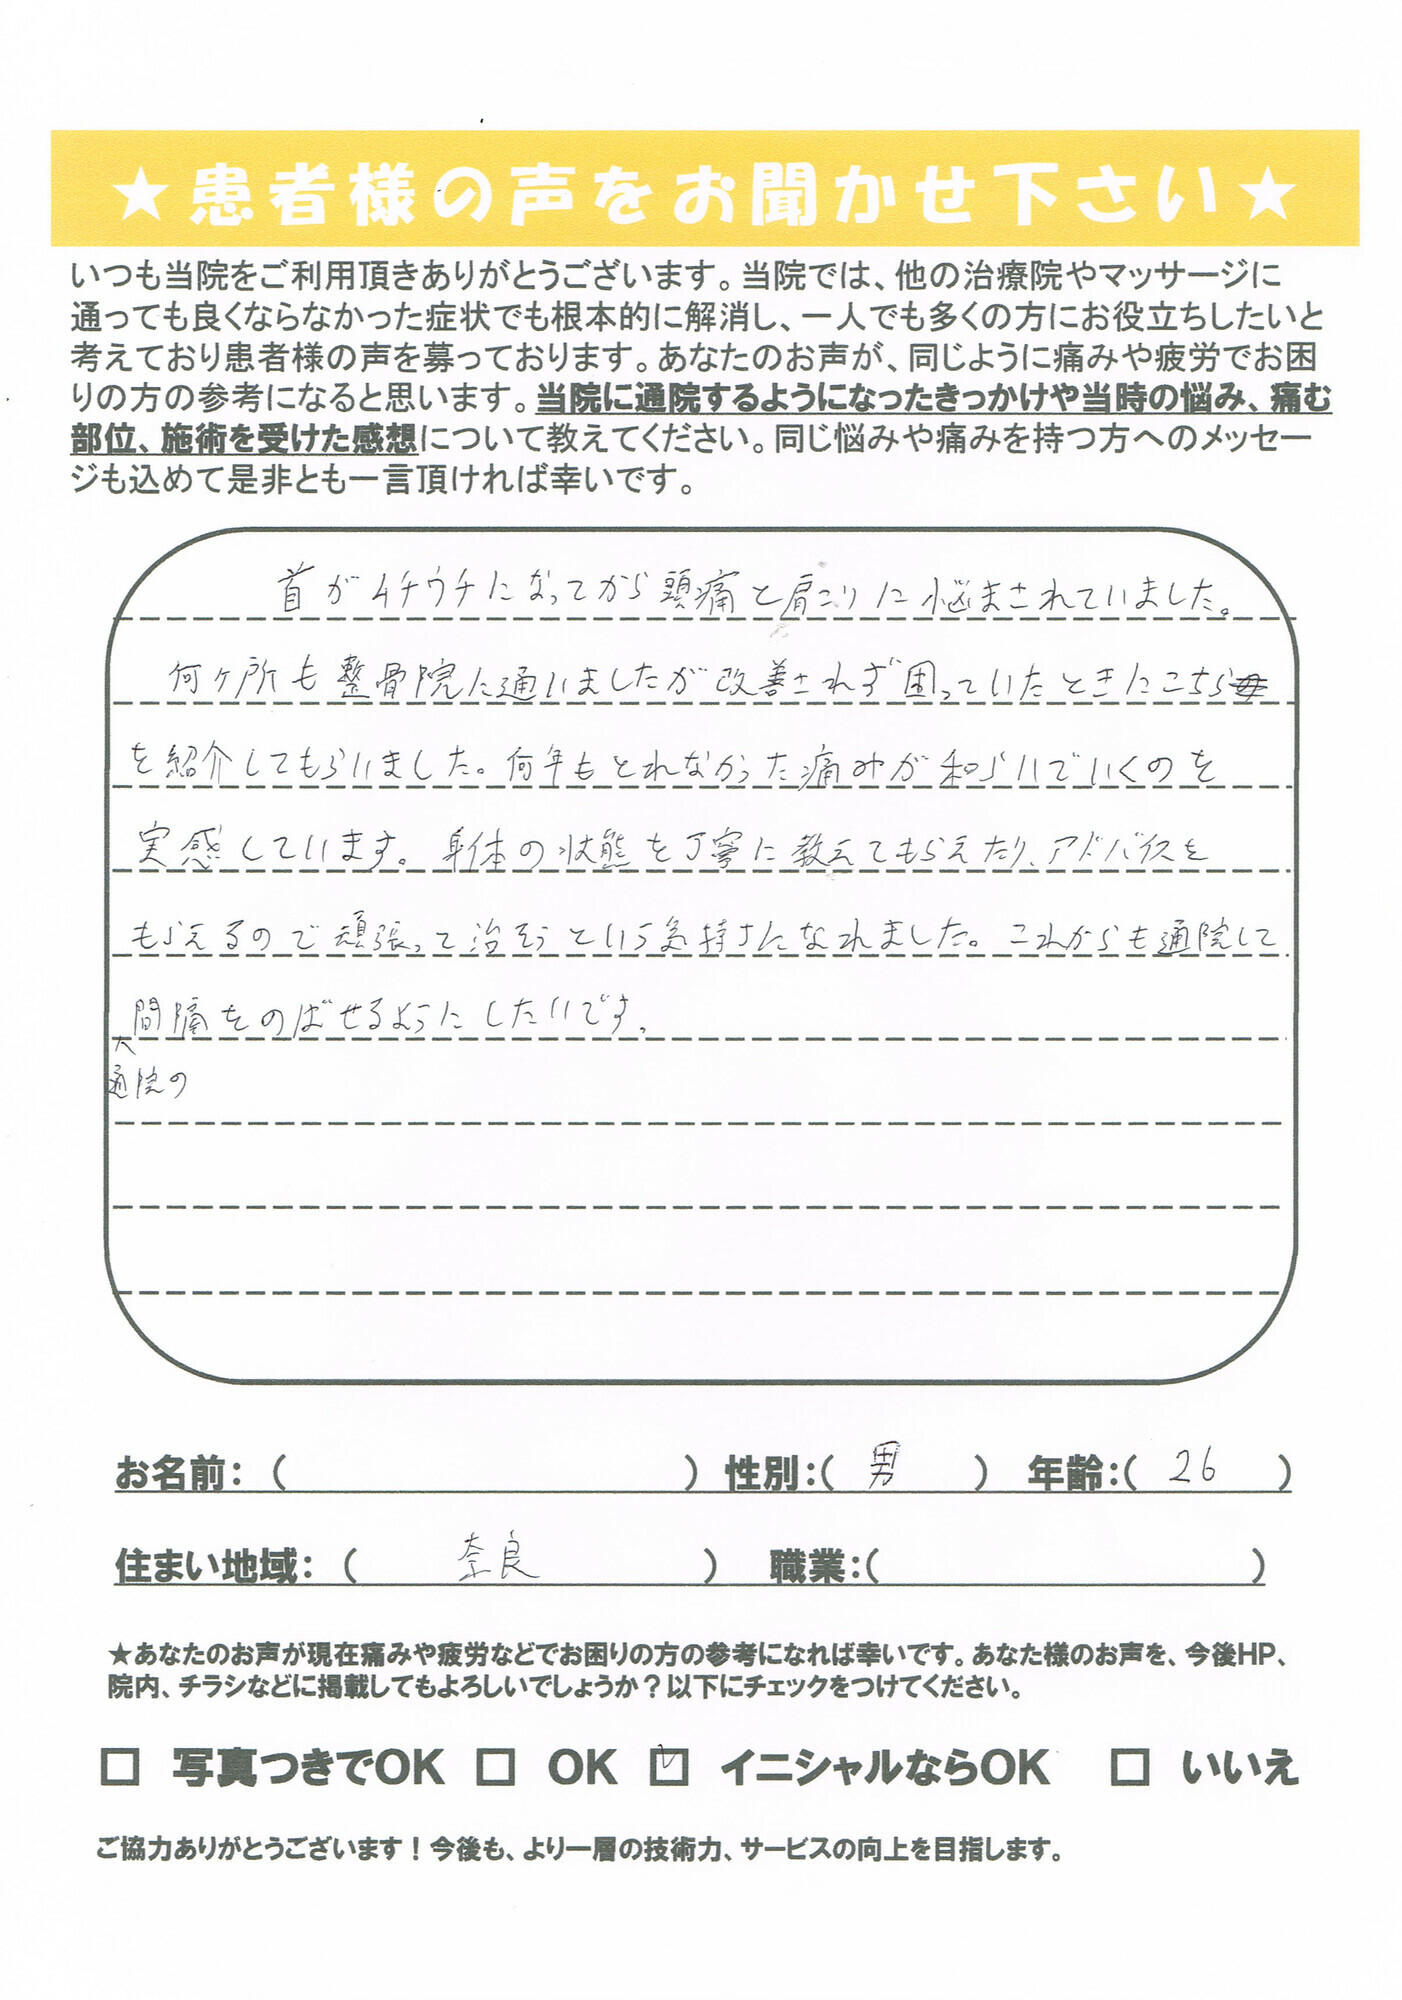 ★患者様の声をお聞かせ下さい★
いつも当院をご利用頂きありがとうございます。当院では、他の治療院やマッサージに
通っても良くならなかった症状でも根本的に解消し、一人でも多くの方にお役立ちしたいと
考えており患者様の声を募っております。あなたのお声が、同じように痛みや疲労でお困
りの方の参考になると思います。当院に通院するようになったきっかけや当時の悩み、痛む
部位、施術を受けた感想について教えてください。同じ悩みや痛みを持つ方へのメッセー
ジも込めて是非とも一言頂ければ幸いです。
首がムチウチになってから頭痛と肩こりに悩まされていました。
何ヶ所も整骨院に通いましたが改善されず困っていたときにこちら
を紹介してもらいました。何年もとれなかった痛みが和らいでいくのを
実感しています。身体の状態を丁寧に教えてもらえたり、アドバイスを
もらえるので頑張って治そうという気持ちになれました。これからも通院して
間隔をのばせるようにしたいです。
通院の
お名前：（　　　）性別：（ 男 ）年齢：（ 26 ）
住まい地域：（ 奈良 ）職業：（　　　）
★あなたのお声が現在痛みや疲労などでお困りの方の参考になれば幸いです。あなた様のお声を、今後HP、
院内、チラシなどに掲載してもよろしいでしょうか？以下にチェックをつけてください。
□ 写真つきでOK □ OK ☑ イニシャルならOK □ いいえ
ご協力ありがとうございます！今後も、より一層の技術力、サービスの向上を目指します。